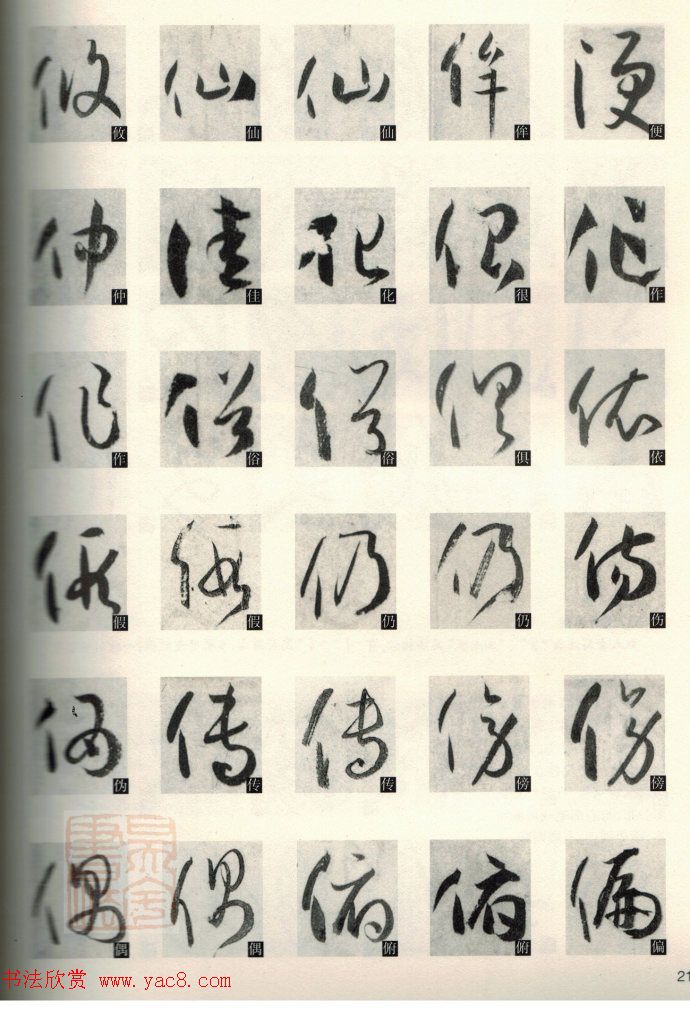 攸 仙 仙 侔 便
仲 佳 化 很 作
作 俗 俗 俱 依
假 假 仍 仍 伤
伪 传 传 傍 傍
偶 偶 俯 俯 偏
21
书法欣赏 www.yac8.com